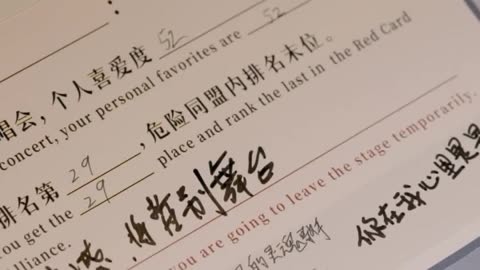 唱会，个人喜爱度 52
concert, your personal favorites are 52
排名第 29 ，危险同盟内排名末位。
You get the 29 place and rank the last in the Red Card
alliance.
将暂别舞台
you are going to leave the stage temporarily.
你在我心里是